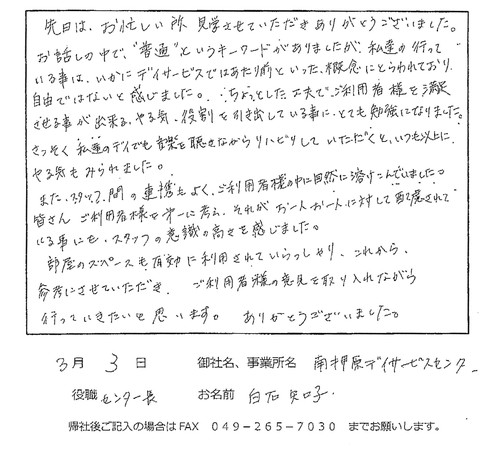 先日は、お忙しい所 見学させていただきありがとうございました。
お話しの中で、"普通"というキーワードがありましたが、私達の行って
いる事は、いかにデイサービスではあたり前といった、概念にとらわれており、
自由ではないと感じました。ちょっとした工夫でご利用者様を満足
させる事が出来る、やる気、役割を引き出している事に、とても勉強になりました。
さっそく 私達のデイでも音楽を聴きながらリハビリしていただくと、いつも以上に
やる気もみられました。
また、スタッフ間の連携もよく、ご利用者様の中に自然に溶けこんでいました。
皆さん ご利用者様を第一に考え、それがお一人お一人に対して配慮されて
いる事にも、スタッフの意識の高さを感じました。
部屋のスペースも有効に利用されていらっしゃり、これから、
参考にさせていただき、ご利用者様の意見を取り入れながら
行っていきたいと思います。 ありがとうございました。
3月 3日 御社名、事業所名 南押原デイサービスセンター
役職 センター長 お名前 白石
帰社後ご記入の場合はFAX 049-265-7030 までお願いします。